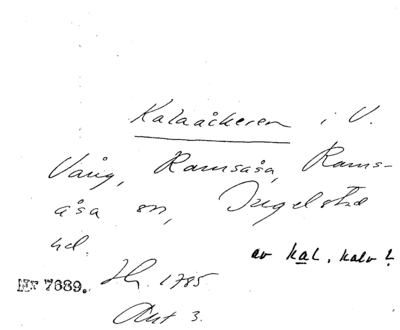 Kalaåckeren i V.
Vång, Ramsåsa, Rams-
åsa sn, Ingelstad
hd. av kal, kalv?
Hr 7689. Jb. 1785
Akt 3.